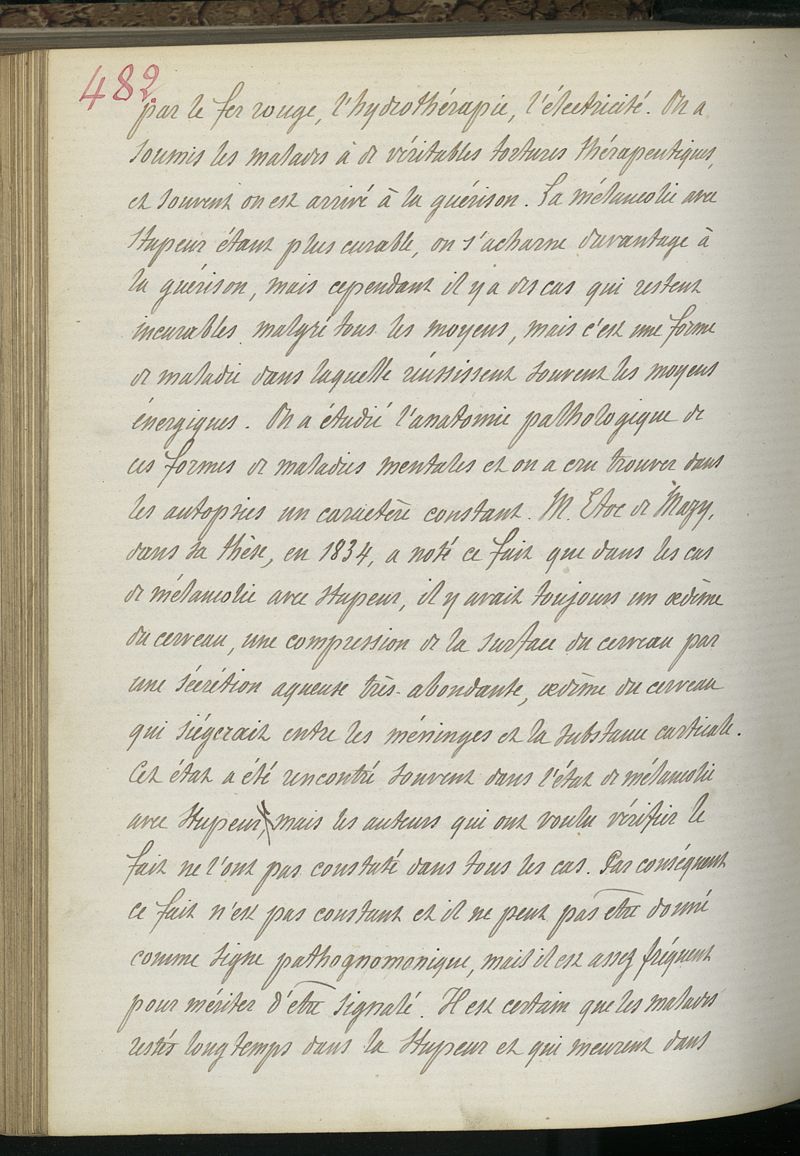 482
par le fer rouge, l'hydrothérapie, l'électricité. On a
soumis les malades à de véritables tortures thérapeutiques,
et souvent on est arrivé à la guérison. La mélancolie avec
stupeur étant plus curable, on s'acharne davantage à
la guérison, mais cependant il y a des cas qui restent
incurables malgré tous les moyens, mais c'est une forme
de maladie dans laquelle réussissent souvent les moyens
énergiques. On a étudié l'anatomie pathologique de
ces formes de maladies mentales et on a cru trouver dans
les autopsies un caractère constant. M. Etoc de Mazy,
dans sa thèse, en 1834, a noté ce fait que dans les cas
de mélancolie avec stupeur, il y avait toujours un œdème
du cerveau, une compression de la surface du cerveau par
une sécrétion aqueuse très-abondante, œdème du cerveau
qui siégerait entre les méninges et la substance corticale.
Cet état a été rencontré souvent dans l'état de mélancolie
avec stupeur, mais les auteurs qui ont voulu vérifier le
fait ne l'ont pas constaté dans tous les cas. Par conséquent
ce fait n'est pas constant et il ne peut pas être donné
comme signe pathognomonique, mais il est assez fréquent
pour mériter d'être signalé. Il est certain que les malades
restés longtemps dans la stupeur et qui meurent dans